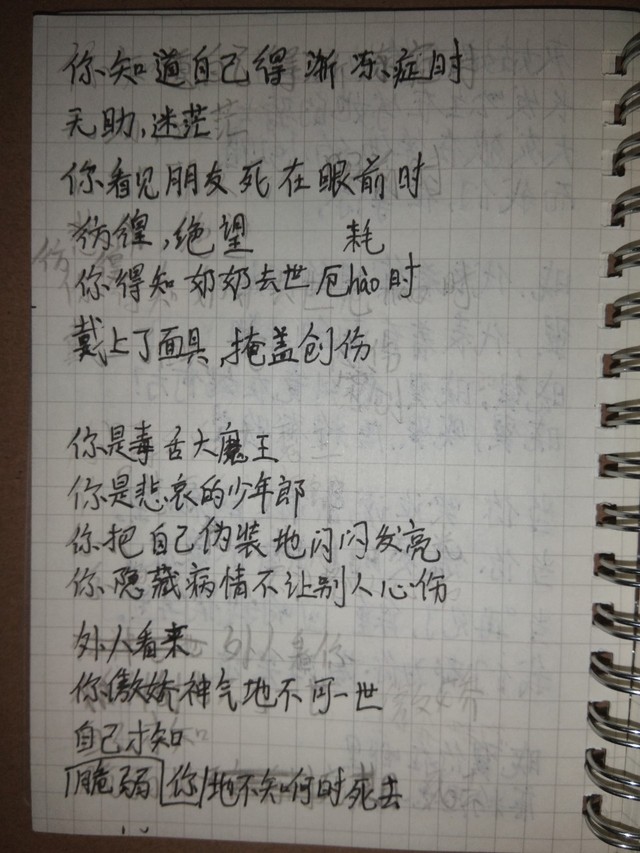 你知道自己得渐冻症时
无助,迷茫
你看见朋友死在眼前时
彷徨,绝望
耗
你得知奶奶去世厄hào时
戴上了面具,掩盖创伤
你是毒舌大魔王
你是悲哀的少年郎
你把自己伪装地闪闪发亮
你隐藏病情不让别人心伤
外人看来
你傲娇神气地不可一世
自己才知
脆弱你地不知何时死去